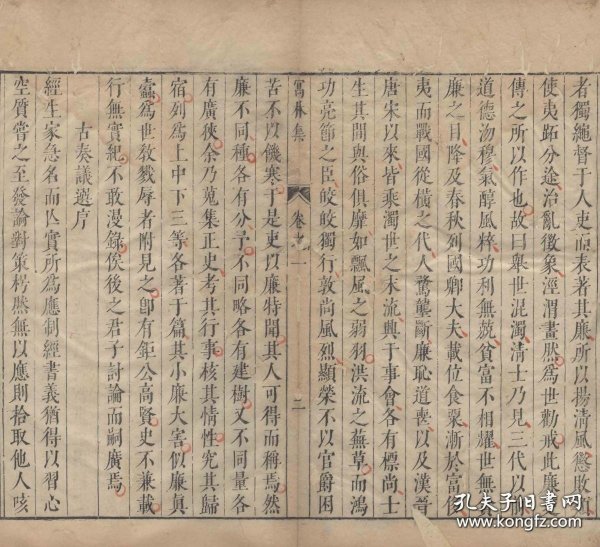 者獨繩督于人吏而表著其廉所以揚清風懲敗
使夷跖分途治亂徵象涇渭畫然為世勸戒此廉
傳之所以作也故曰舉世混濁清士乃見三代以
道德沕穆氣醇風粹功利無兢貪富不相耀世無
廉之目降及春秋列國卿大夫載位食粟漸於富
夷而戰國從橫之代人騖壟斷廉恥道喪以及漢晉
唐宋以來皆乘濁世之末流與于事會各有標尚士
生其間與俗俱靡如飄風之弱羽洪流之蕪草而鴻
功亮節之臣皎皎獨行敦尚風烈顯榮不以官爵困
寓林集
卷
二
苦不以饑寒于是吏以廉特聞其人可得而稱焉然
廉不同種各有分予不同略各有建樹又不同量各
有廣狹余乃蒐集正史考其行事核其情性究其歸
宿列為上中下三等各著于篇其小廉大害似廉真
蠹為世教戮辱者附見之即有鉅公高賢史不兼載
行無實紀不敢漫錄俟後之君子討論而嗣廣焉
古奏議選序
經生家急名而亾實所為應制經書義猶得以習心
空質嘗之至發論對策楞然無以應則拾取他人咳
孔夫子旧书网
www.kongfz.com